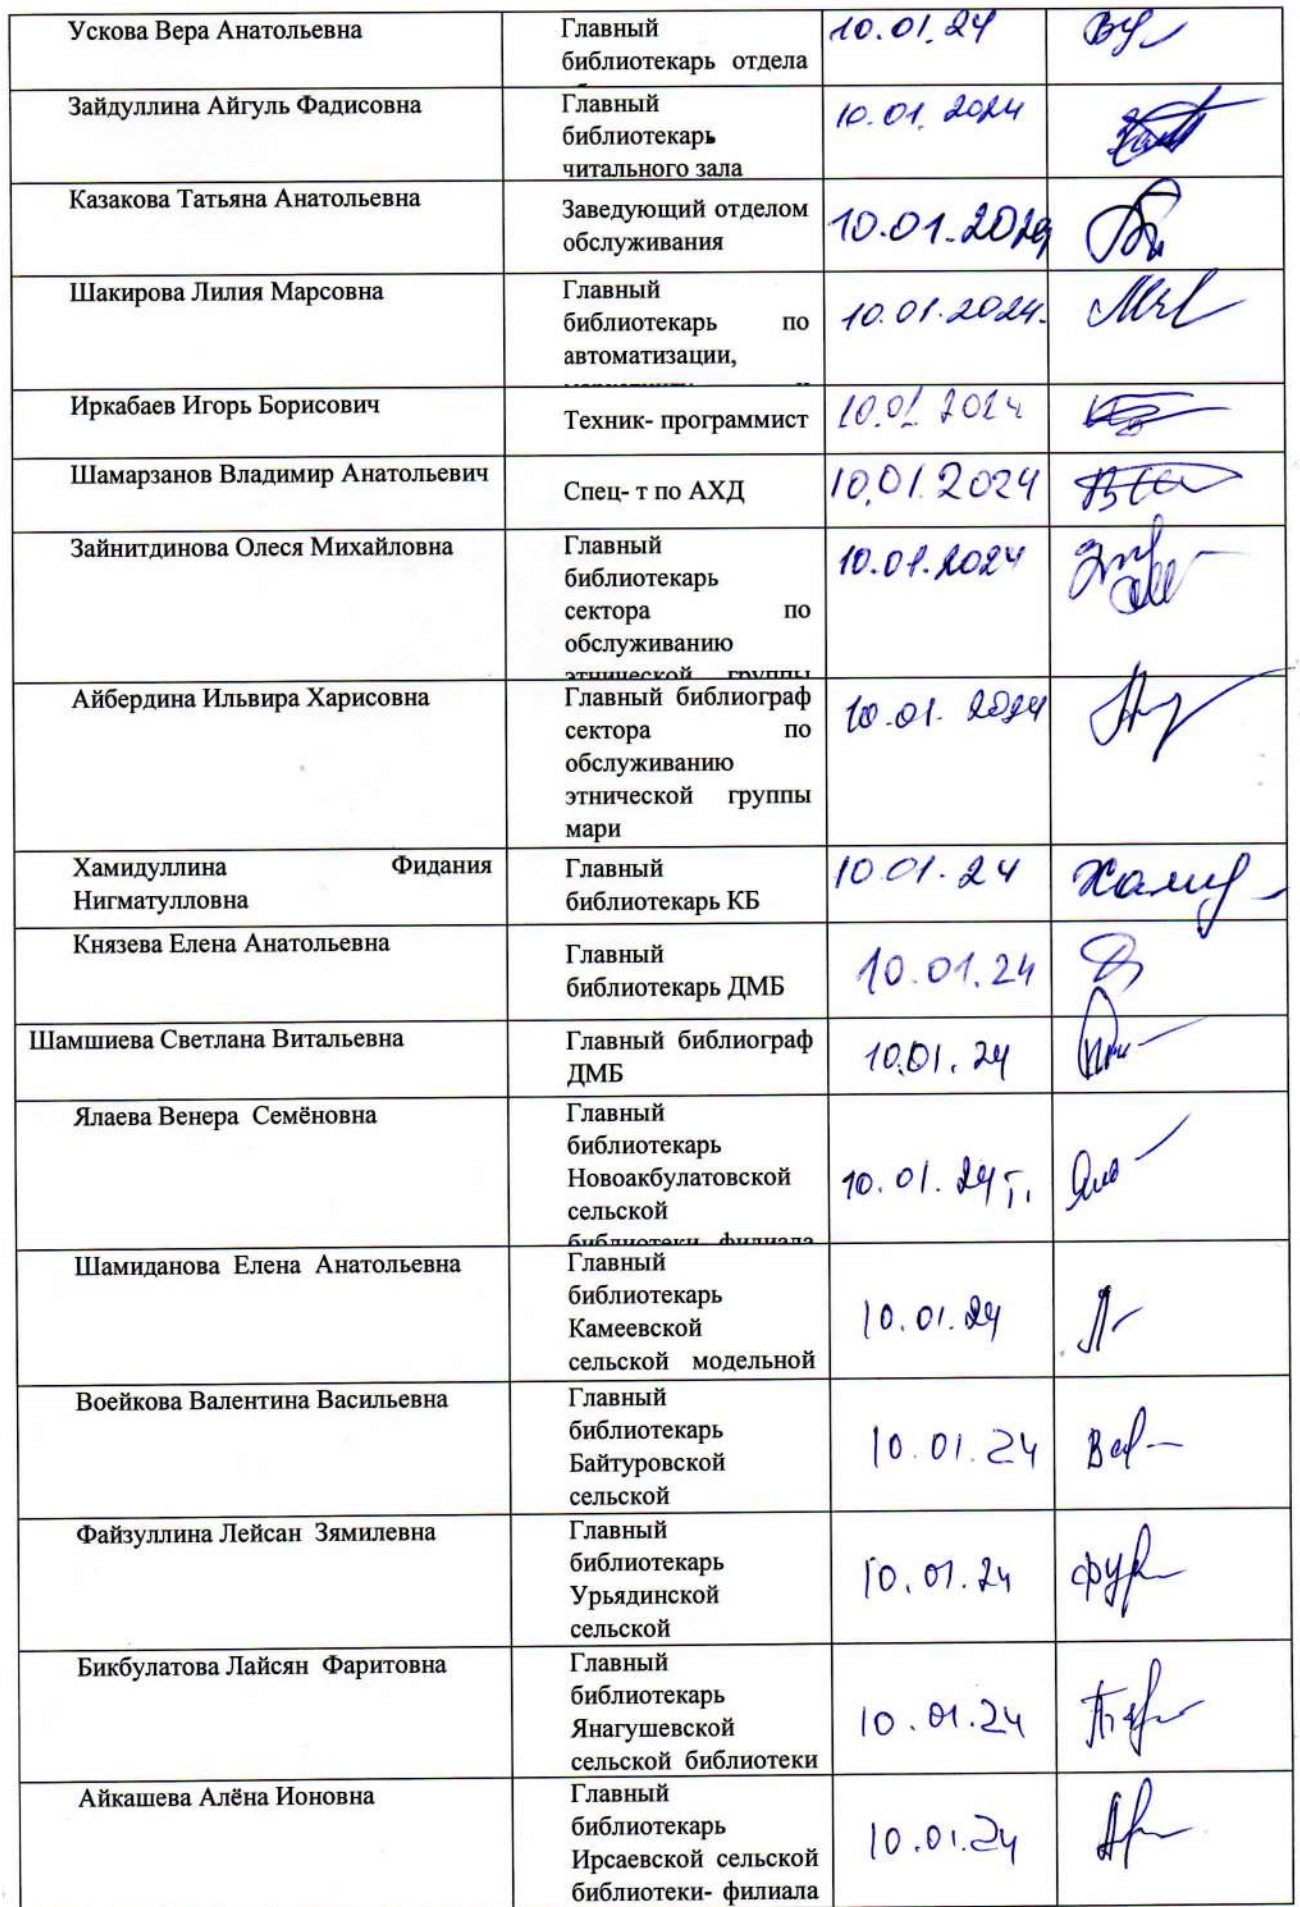 Ускова Вера Анатольевна
Главный
библиотекарь отдела
10.01.24
Зайдуллина Айгуль Фадисовна
Главный
библиотекарь
читального зала
10.01.2024
Казакова Татьяна Анатольевна
Заведующий отделом
обслуживания
10.01.2024
Шакирова Лилия Марсовна
Главный
библиотекарь по
автоматизации,
10.01.2024.
Иркабаев Игорь Борисович
Техник- программист
10.01.2024
Шамарзанов Владимир Анатольевич
Спец- т по АХД
10.01.2024
Зайнитдинова Олеся Михайловна
Главный
библиотекарь
сектора по
обслуживанию
этнической группы
10.01.2024
Айбердина Ильвира Харисовна
Главный библиограф
сектора по
обслуживанию
этнической группы
мари
10.01.2024
Хамидуллина Фидания
Нигматулловна
Главный
библиотекарь КБ
10.01.24
Князева Елена Анатольевна
Главный
библиотекарь ДМБ
10.01.24
Шамшиева Светлана Витальевна
Главный библиограф
ДМБ
10.01.24
Ялаева Венера Семёновна
Главный
библиотекарь
Новоакбулатовской
сельской
библиотеки филиала
10.01.24г.
Шамиданова Елена Анатольевна
Главный
библиотекарь
Камеевской
сельской модельной
10.01.24
Воейкова Валентина Васильевна
Главный
библиотекарь
Байтуровской
сельской
10.01.24
Файзуллина Лейсан Зямилевна
Главный
библиотекарь
Урьядинской
сельской
10.01.24
Бикбулатова Лайсян Фаритовна
Главный
библиотекарь
Янагушевской
сельской библиотеки
10.01.24
Айкашева Алёна Ионовна
Главный
библиотекарь
Ирсаевской сельской
библиотеки- филиала
10.01.24